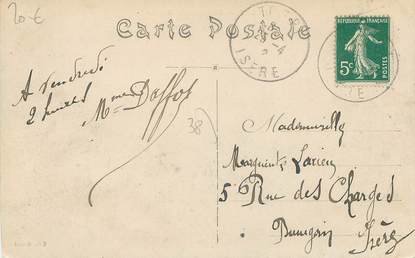 20 €
Carte Postale
ISERE
REPUBLIQUE FRANÇAISE
5c
POSTES
A vendredi
2 heures
Mme Daffos
38
Mademoiselle
Marguerite
5 Rue des Charges
Bourgoin
Isère